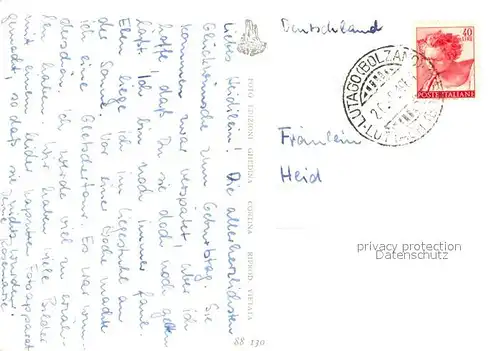 Liebes Heidilein! Die allerherzlichsten
Glückwünsche zum Geburtstag. Sie
kommen zwar verspätet, aber ich
hoffe, daß Du sie doch noch gelten
läßt. Ich bin noch immer faul.
Eben liege ich im Liegestuhl an
der Sonne. Vor einer Woche machte
ich eine Gletschertour. Es war wun-
derschön. Ich werde viel zu erzäh-
len haben. Wir haben viele Bilder
mit einem leider kaputten Fotoapparat
gemacht, so daß sie nichts wurden.
Deine Rosmarie
FOTO EDIZIONI GHEDINA CORTINA
RIPROD. VIETATA
88 130
Deutschland
40
LIRE
POSTE ITALIANE
LUTAGO (BOLZANO)
Fräulein
Heid
privacy protection
Datenschutz